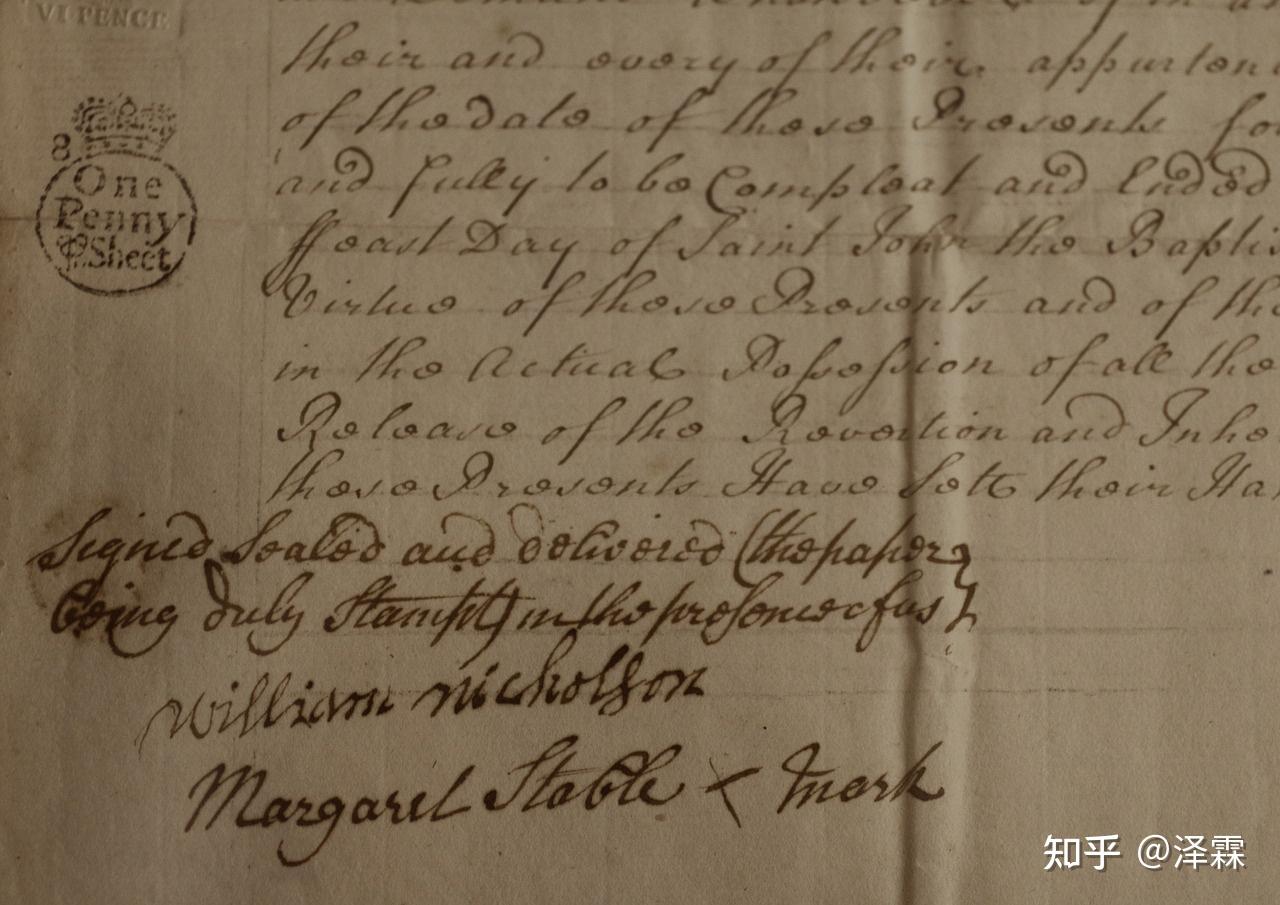 VI PENCE
their and every of their appurten
of the date of these Presents fo
and fully to be Compleat and Ended
ffeast Day of Saint John the Baptis
Virtue of these Presents and of the
in the Actual Possession of all the
Release of the Revertion and Inhe
these Presents Have Sett their Han
8
One
Penny
P. Sheet
Signed Sealed and delivered (the paper
being duly Stampt) in the presence of us
William Nicholson
Margaret Stable X Mark
知乎 @泽霖